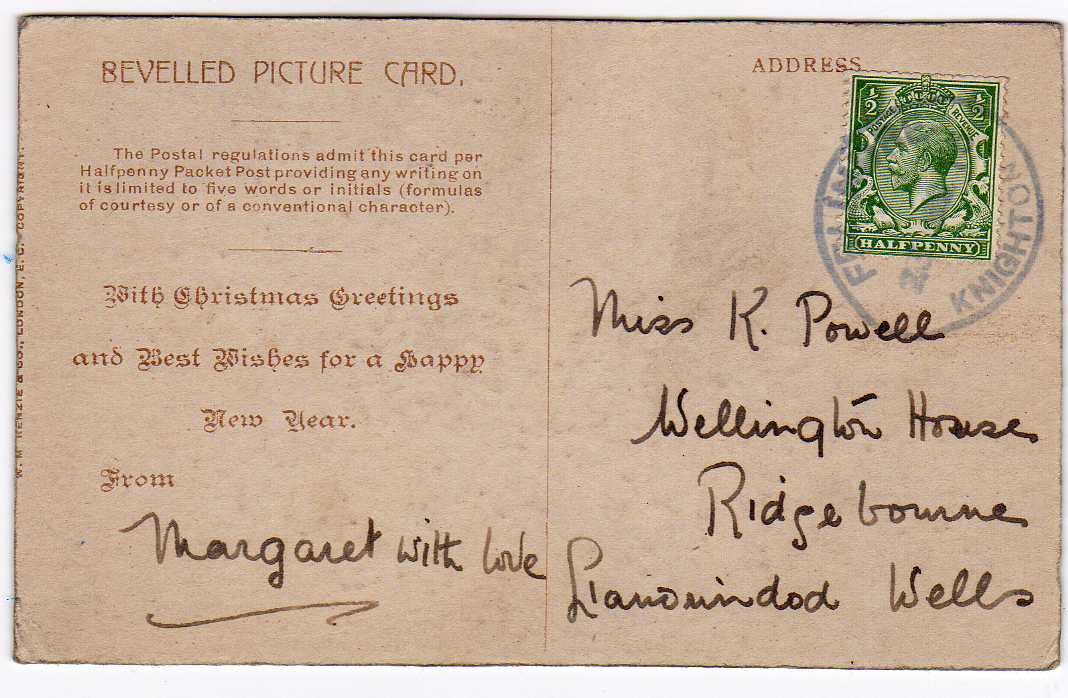 BEVELLED PICTURE CARD.
The Postal regulations admit this card per
Halfpenny Packet Post providing any writing on
it is limited to five words or initials (formulas
of courtesy or of a conventional character).
With Christmas Greetings
and Best Wishes for a Happy
New Year.
From
Margaret with love
W. M KENZIE & CO., LONDON, E. C. COPYRIGHT.
ADDRESS
½ ½
POSTAGE REVENUE
HALFPENNY
KNIGHTON
Miss K. Powell
Wellington House
Ridgebourne
Llandrindod Wells